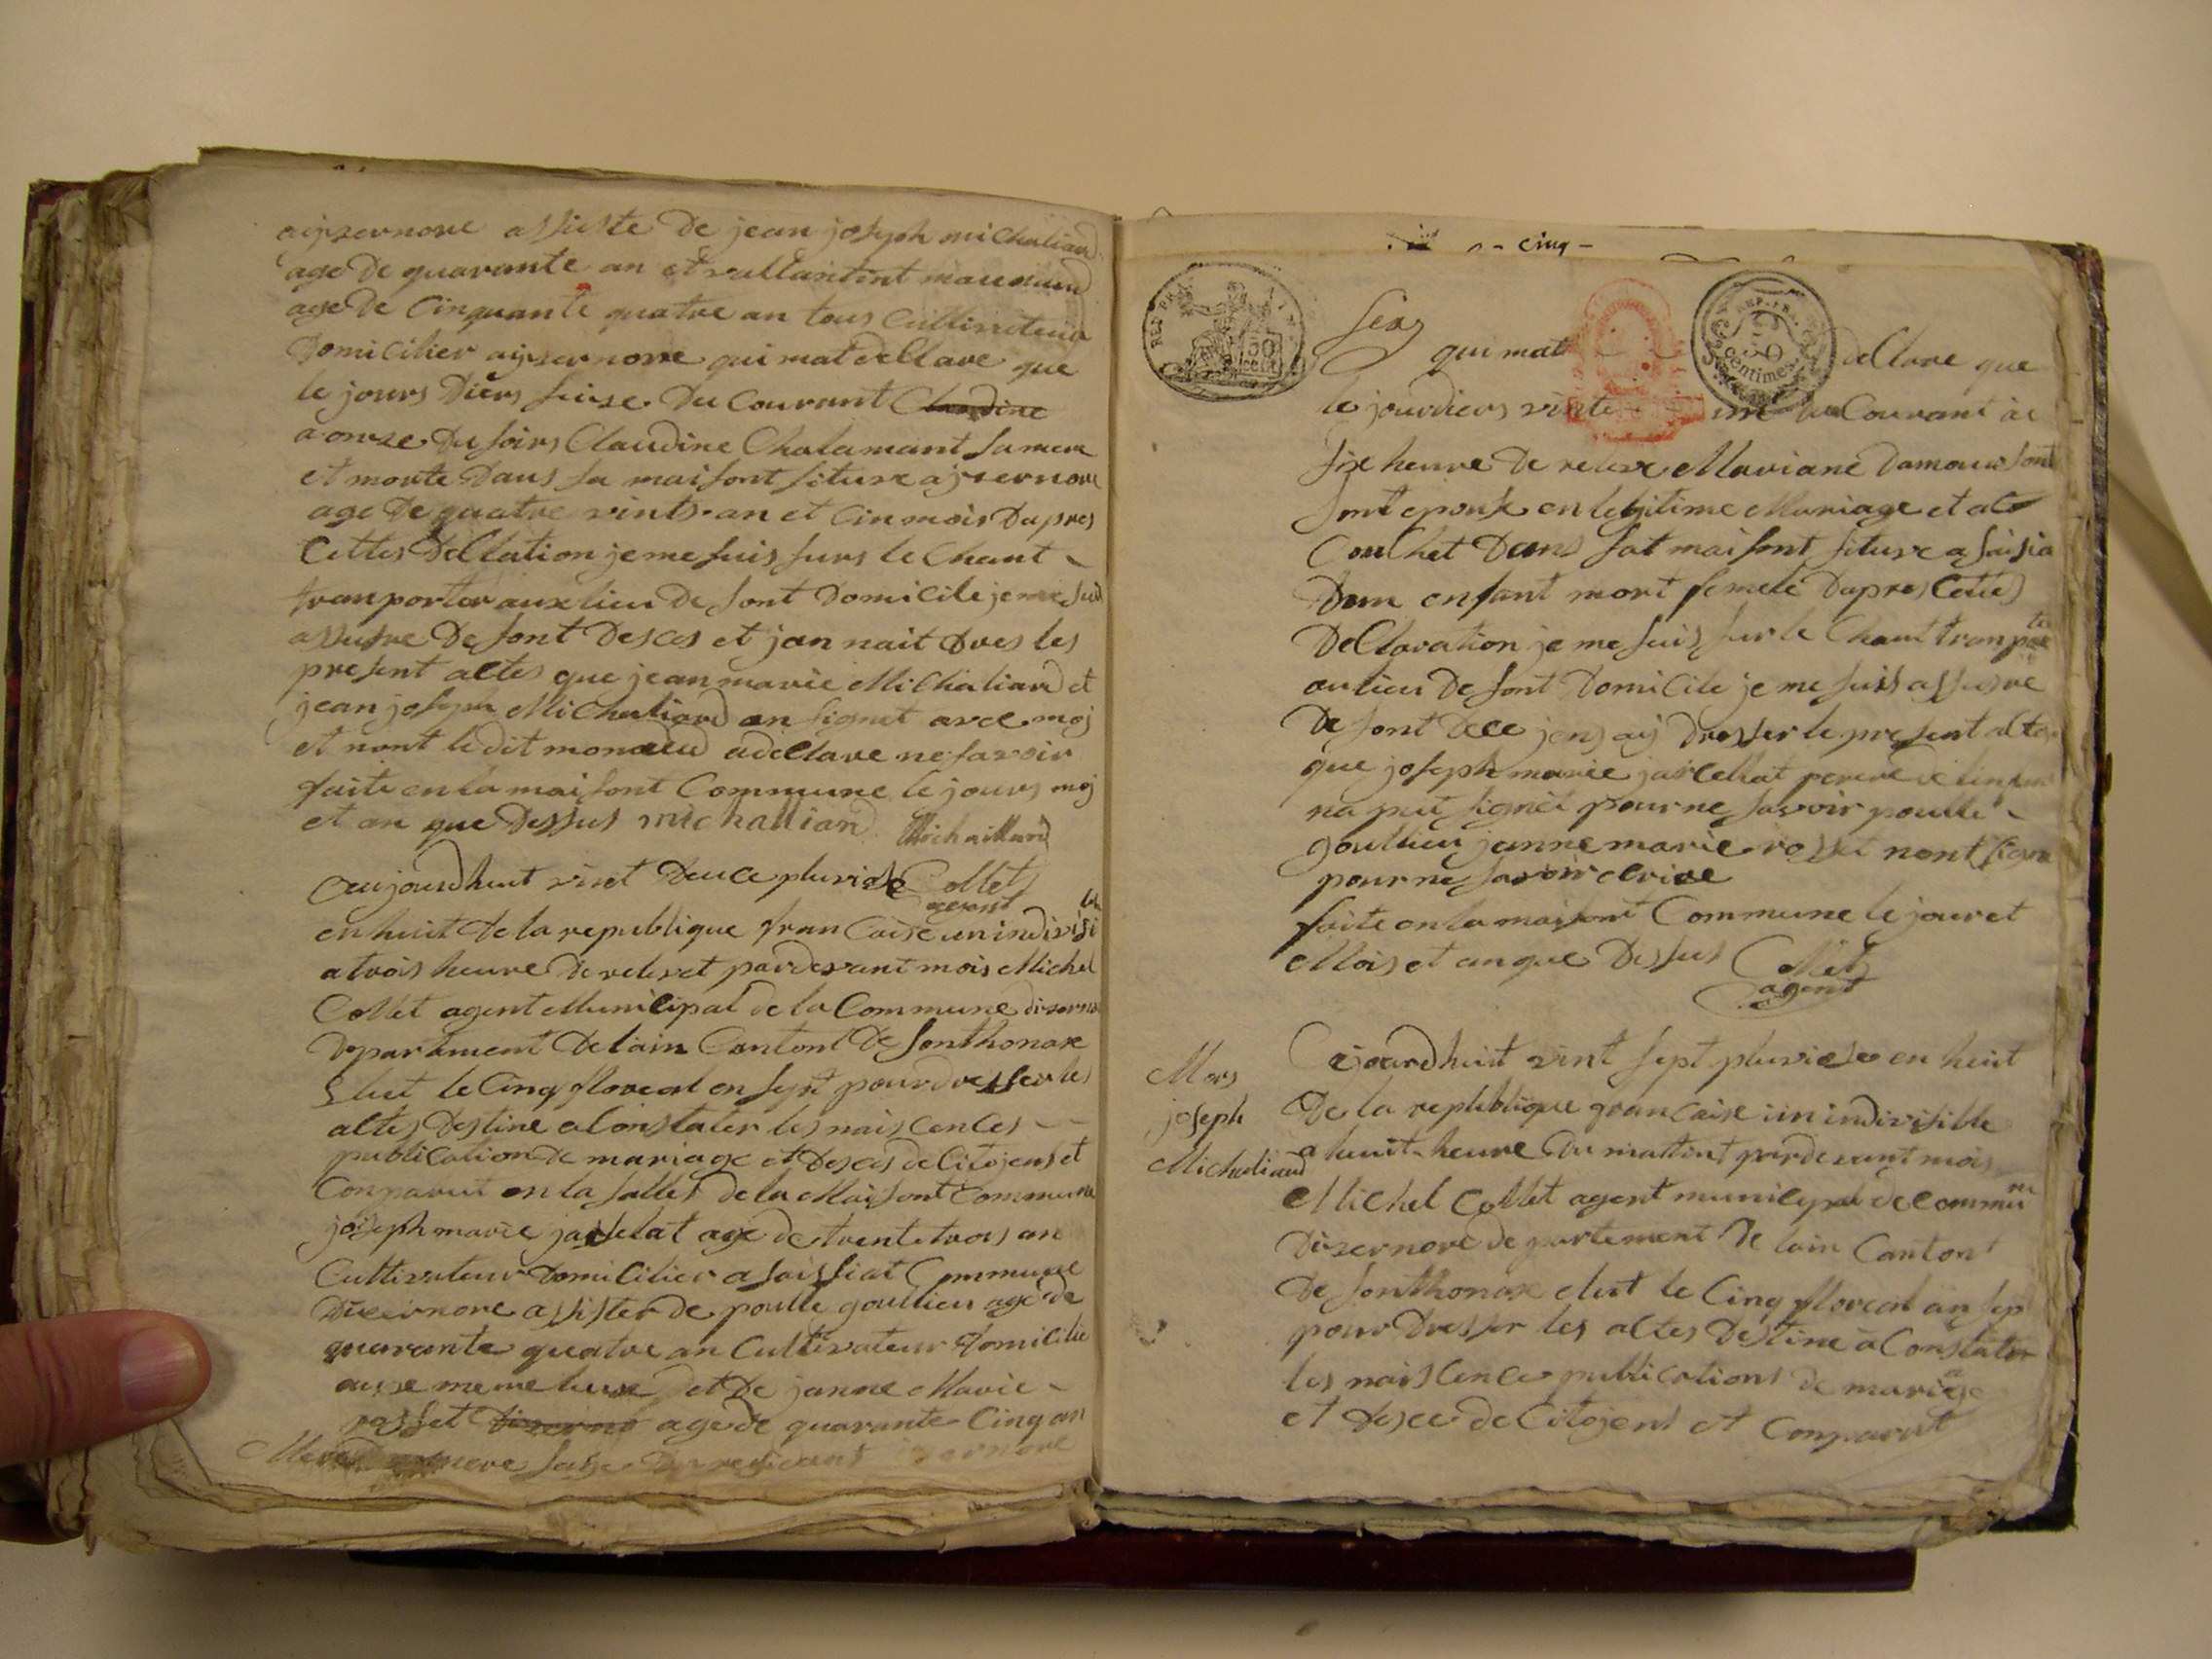 aizernore assiste de jean joseph michaliard
age de quarante an et vallantint
age de Cinquante quatre an tous Cultivateur
Domicilier aizernore qui mat dellare que
le jours Diers seise Du Courant Claudine
a onze Du soirs Claudine Chalamant sa mere
et morte Dans sa maisont situee ajzernore
age De quatre vints an et Cin mois Dapres
Cettes Dellation je me suis surs le Chant
tranporter aux lieu De sont Domicile je me suis
assusre De sont Deses et jan nait dres les
present altes que jean marie Michaliard et
jean joseph Michaliard an signet avec moj
et nont le dit monneud a dellare ne savoir
faite en la maisont Commune le jours moj
et an que Dessus michallian Michaillard
aujourdhuit vint Deuce pluviose Collet
agent
en huit de la republique francaise un indivisi ble
a trois heure De relevet pardevant mois Michel
Collet agent Municipal de la Commune dizernore
Departement Delain Cantont De sonthonax
Elut le Cinq floreal en sept pour dresser les
altes Destine a Constater les naiscences
publication de mariage et Deses de Citojens et
Conparut en la salles de la Maisont Commune
joseph marie jasselat age de trente trois an
Cultivateur Domicilier a saissiat Commune
Dizernore assister de poulle goullieu age de
quarante quatre an Cultivateur domicilie
ausse meme lieux et De janne Marie
rosset dizerno age de quarante Cinq an
sage
cinq
REP FRA
50
CENT
REP. FRA.
50
centimes
sexs
qui mat dellare que
le jourdiers vinte un du Courant a
six heure De relexe Mariane Damour sont
sont epouse en legitime Mariage et at
Coulhet Dans sat maisont situee a saisia
Dun enfant mort femele Dapres Cettes
Dellaration je me suis sur le Chant tranpor te
au lieu De sont Domicile je me suis assusre
De sont Dece jens aij Dresser le present altes
que joseph marie jascellat perere de
na put signet pour ne savoir poulle
goullieu janne marie rosset nont signe
pour ne savoir elrire
faite en la maisont Commune le jour et
Mois et an que Dessus Collet
agent
Mors
joseph
Michaliard
Cejourdhuit vint sept pluviose en huit
De la republique francaise un indivisible
a huit heure Du mattint pardevant mois
Michel Collet agent municypal de Commu ne
Dizernore departement De lain Cantont
De sonthonax elut le Cinq floreal an sept
pour Dresser les altes Destine a Constater
les naiscence publications de mariage
et desee de Citojens et Comparut